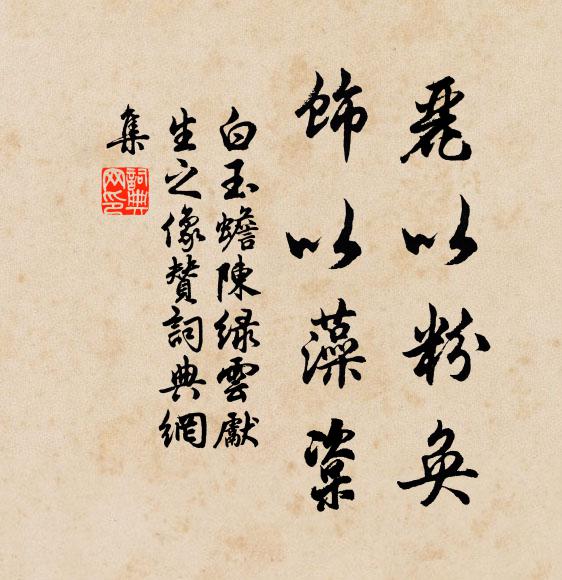 麗以粉奐
飾以藻粢
白玉蟾陳綠雲獻
生之像贊詞典網
集
詞典
网印